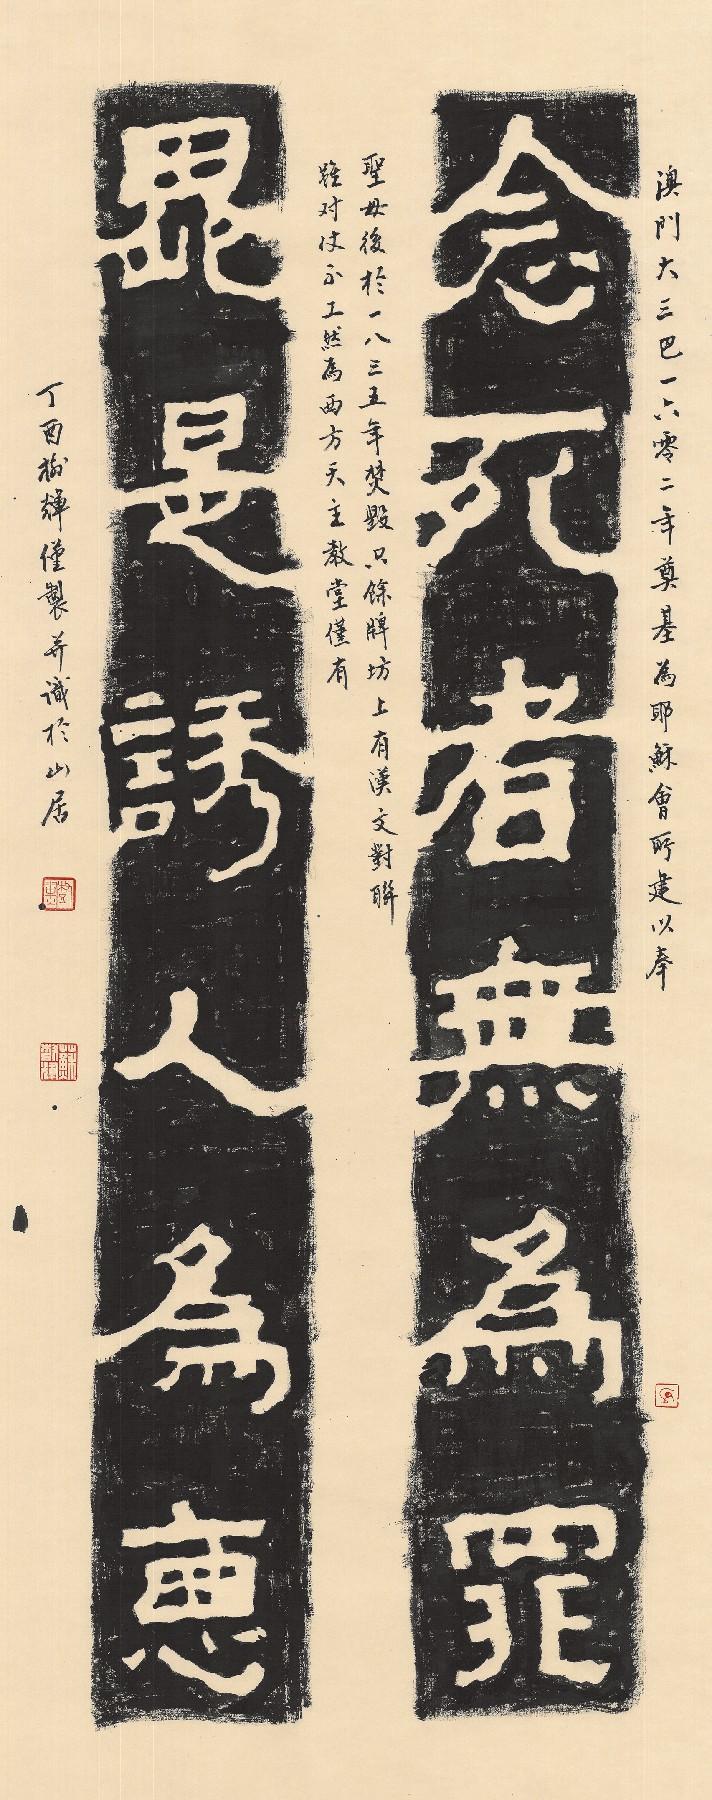 澳門大三巴一六零二年奠基為耶穌會所建以奉
念死者無為罪
聖母後於一八三五年焚毀只餘牌坊上有漢文對聯
雖对仗不工然為西方天主教堂僅有
鬼是誘人為惡
丁酉樹輝僅製并識於山居